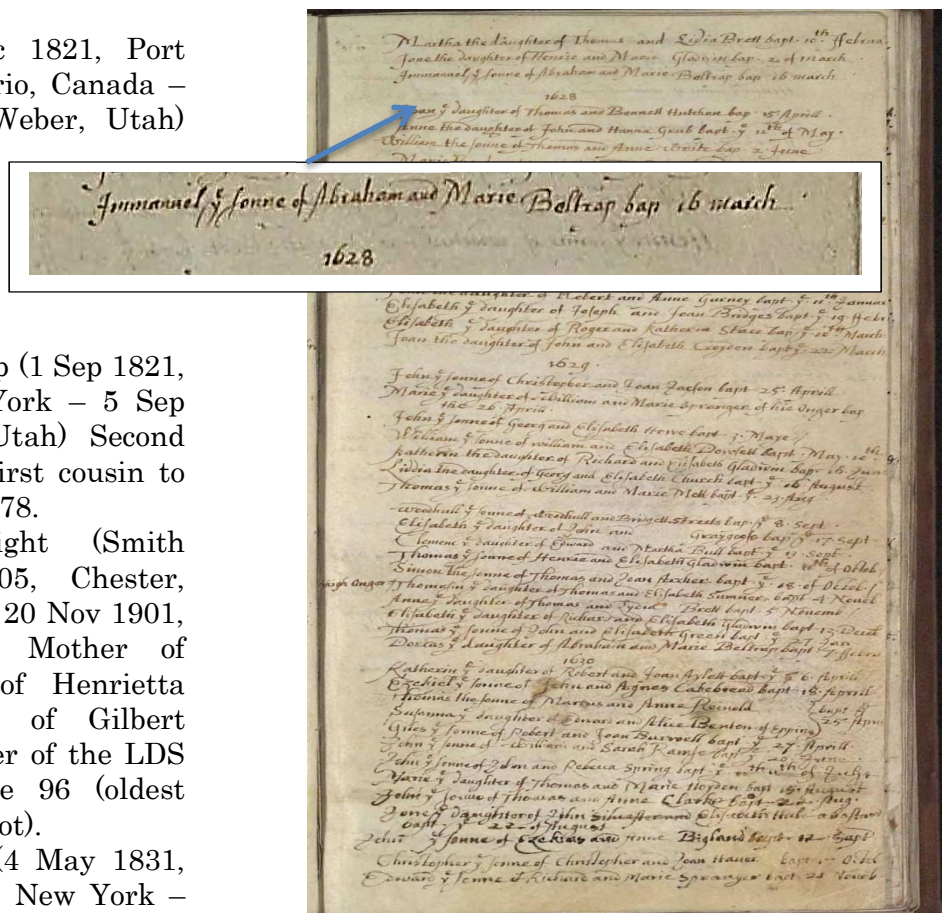 c 1821, Port
rio, Canada –
Weber, Utah)
p (1 Sep 1821,
York – 5 Sep
Utah) Second
first cousin to
78.
ight (Smith
05, Chester,
20 Nov 1901,
Mother of
of Henrietta
of Gilbert
er of the LDS
e 96 (oldest
ot).
(4 May 1831,
New York –
Martha the daughter of Thomas and Lidia Brett bapt. 10th ffebrua
Jone the daughter of Henrie and Marie Gladwin bap. 2 of march
Immanuel ye sonne of Abraham and Marie Beltrap bap 16 march
1628
Joan ye daughter of Thomas and Bennett Hutchen bap. 15 Aprill
Anne the daughter of John and Hanna Grub bapt. ye 11th of May.
William the sonne of Thomas and Anne White bap. 2 June
Immanuel ye sonne of Abraham and Marie Beltrap bap 16 march
1628
the daughter of Robert and Anne Gurney bapt. ye 11th Januar
Elisabeth ye daughter of Joseph and Joan Bridges bapt ye 19 ffebr
Elisabeth ye daughter of Roger and Katherin Stace bap. ye 10th March
Joan the daughter of John and Elisabeth Croydon bapt ye 22 March
1629.
John ye sonne of Christopher and Joan bapt. 25. Aprill
Marie ye daughter of William and Marie Spranger of hie Onger bap
the 26 Aprill
John ye sonne of Georg and Elisabeth bapt. 3. Maye
William ye sonne of William and Elisabeth Dowsett bapt. May. 10th
Katherin the daughter of Richard and Elisabeth Gladwin bap. 16 Jun
Liddia the daughter of Georg and Elisabeth Church bapt. ye 16 August
Thomas ye sonne of William and Marie Mott bapt. ye 23. Aug
Woodhull ye sonne of Woodhull and Bridgett Streete bap. ye 8. Sept.
Elisabeth ye daughter of John and Graygoose bap. ye 17. Sept
Clemenc ye daughter of Edward and Martha Bull bapt ye 19. Sept.
Thomas ye sonne of Henrie and Elisabeth Gladwin bapt. 11th of Octob
Simon the sonne of Thomas and Joan Archer bapt ye 18. of Octob.
Onger Thomasin ye daughter of Thomas and Elisabeth Sumner bapt. 4 Novel
Anne ye daughter of Thomas and Lydia Brett bapt. 5 Novemb
Elisabeth ye daughter of Richard and Elisabeth Gladwin bapt. 13 Decem
Thomas ye sonne of John and Elisabeth Green bapt ye 27 Jan
Dorcas ye daughter of Abraham and Marie Beltrap bapt 7 ffebru
1630
Katherin ye daughter of Robert and Joan Aylett bapt ye 6. Aprill
Ezekiel ye sonne of John and Agnes Cakebread bapt 18. Aprill
Thomas the sonne of Marcus and Anne Reinold
Susanna ye daughter of Edward and Alice Benton of Epping bapt
Giles ye sonne of Robert and Joan Burwell bapt 25 Apri
John ye sonne of William and Sarah bapt ye 27 Aprill.
20 June
John ye sonne of John and Rebecca Spring bapt. ye 11th of July.
Marie ye daughter of Thomas and Marie bapt 15. August
John ye sonne of Thomas and Anne Clarke bapt. 22. Aug.
Jone ye daughter of John and Elisabeth a bastard
bapt. ye 22 of August
John ye sonne of Ezekias and Anne Bigland bapt. 12 Sept
Christopher ye sonne of Christopher and Joan bapt. 17 Octob
Edward ye sonne of Richard and Marie Spranger bapt. 21 Novemb